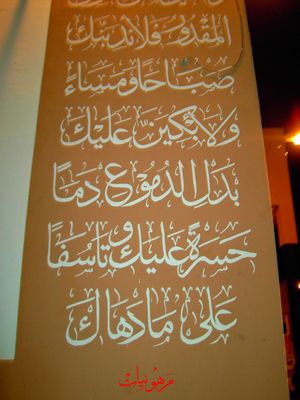 المقدور فلأندبنك
صباحاً ومساءً
ولأبكين عليك
بدل الدموع دماً
حسرةً عليك وتأسفاً
على ما دهاك
مرهونيات